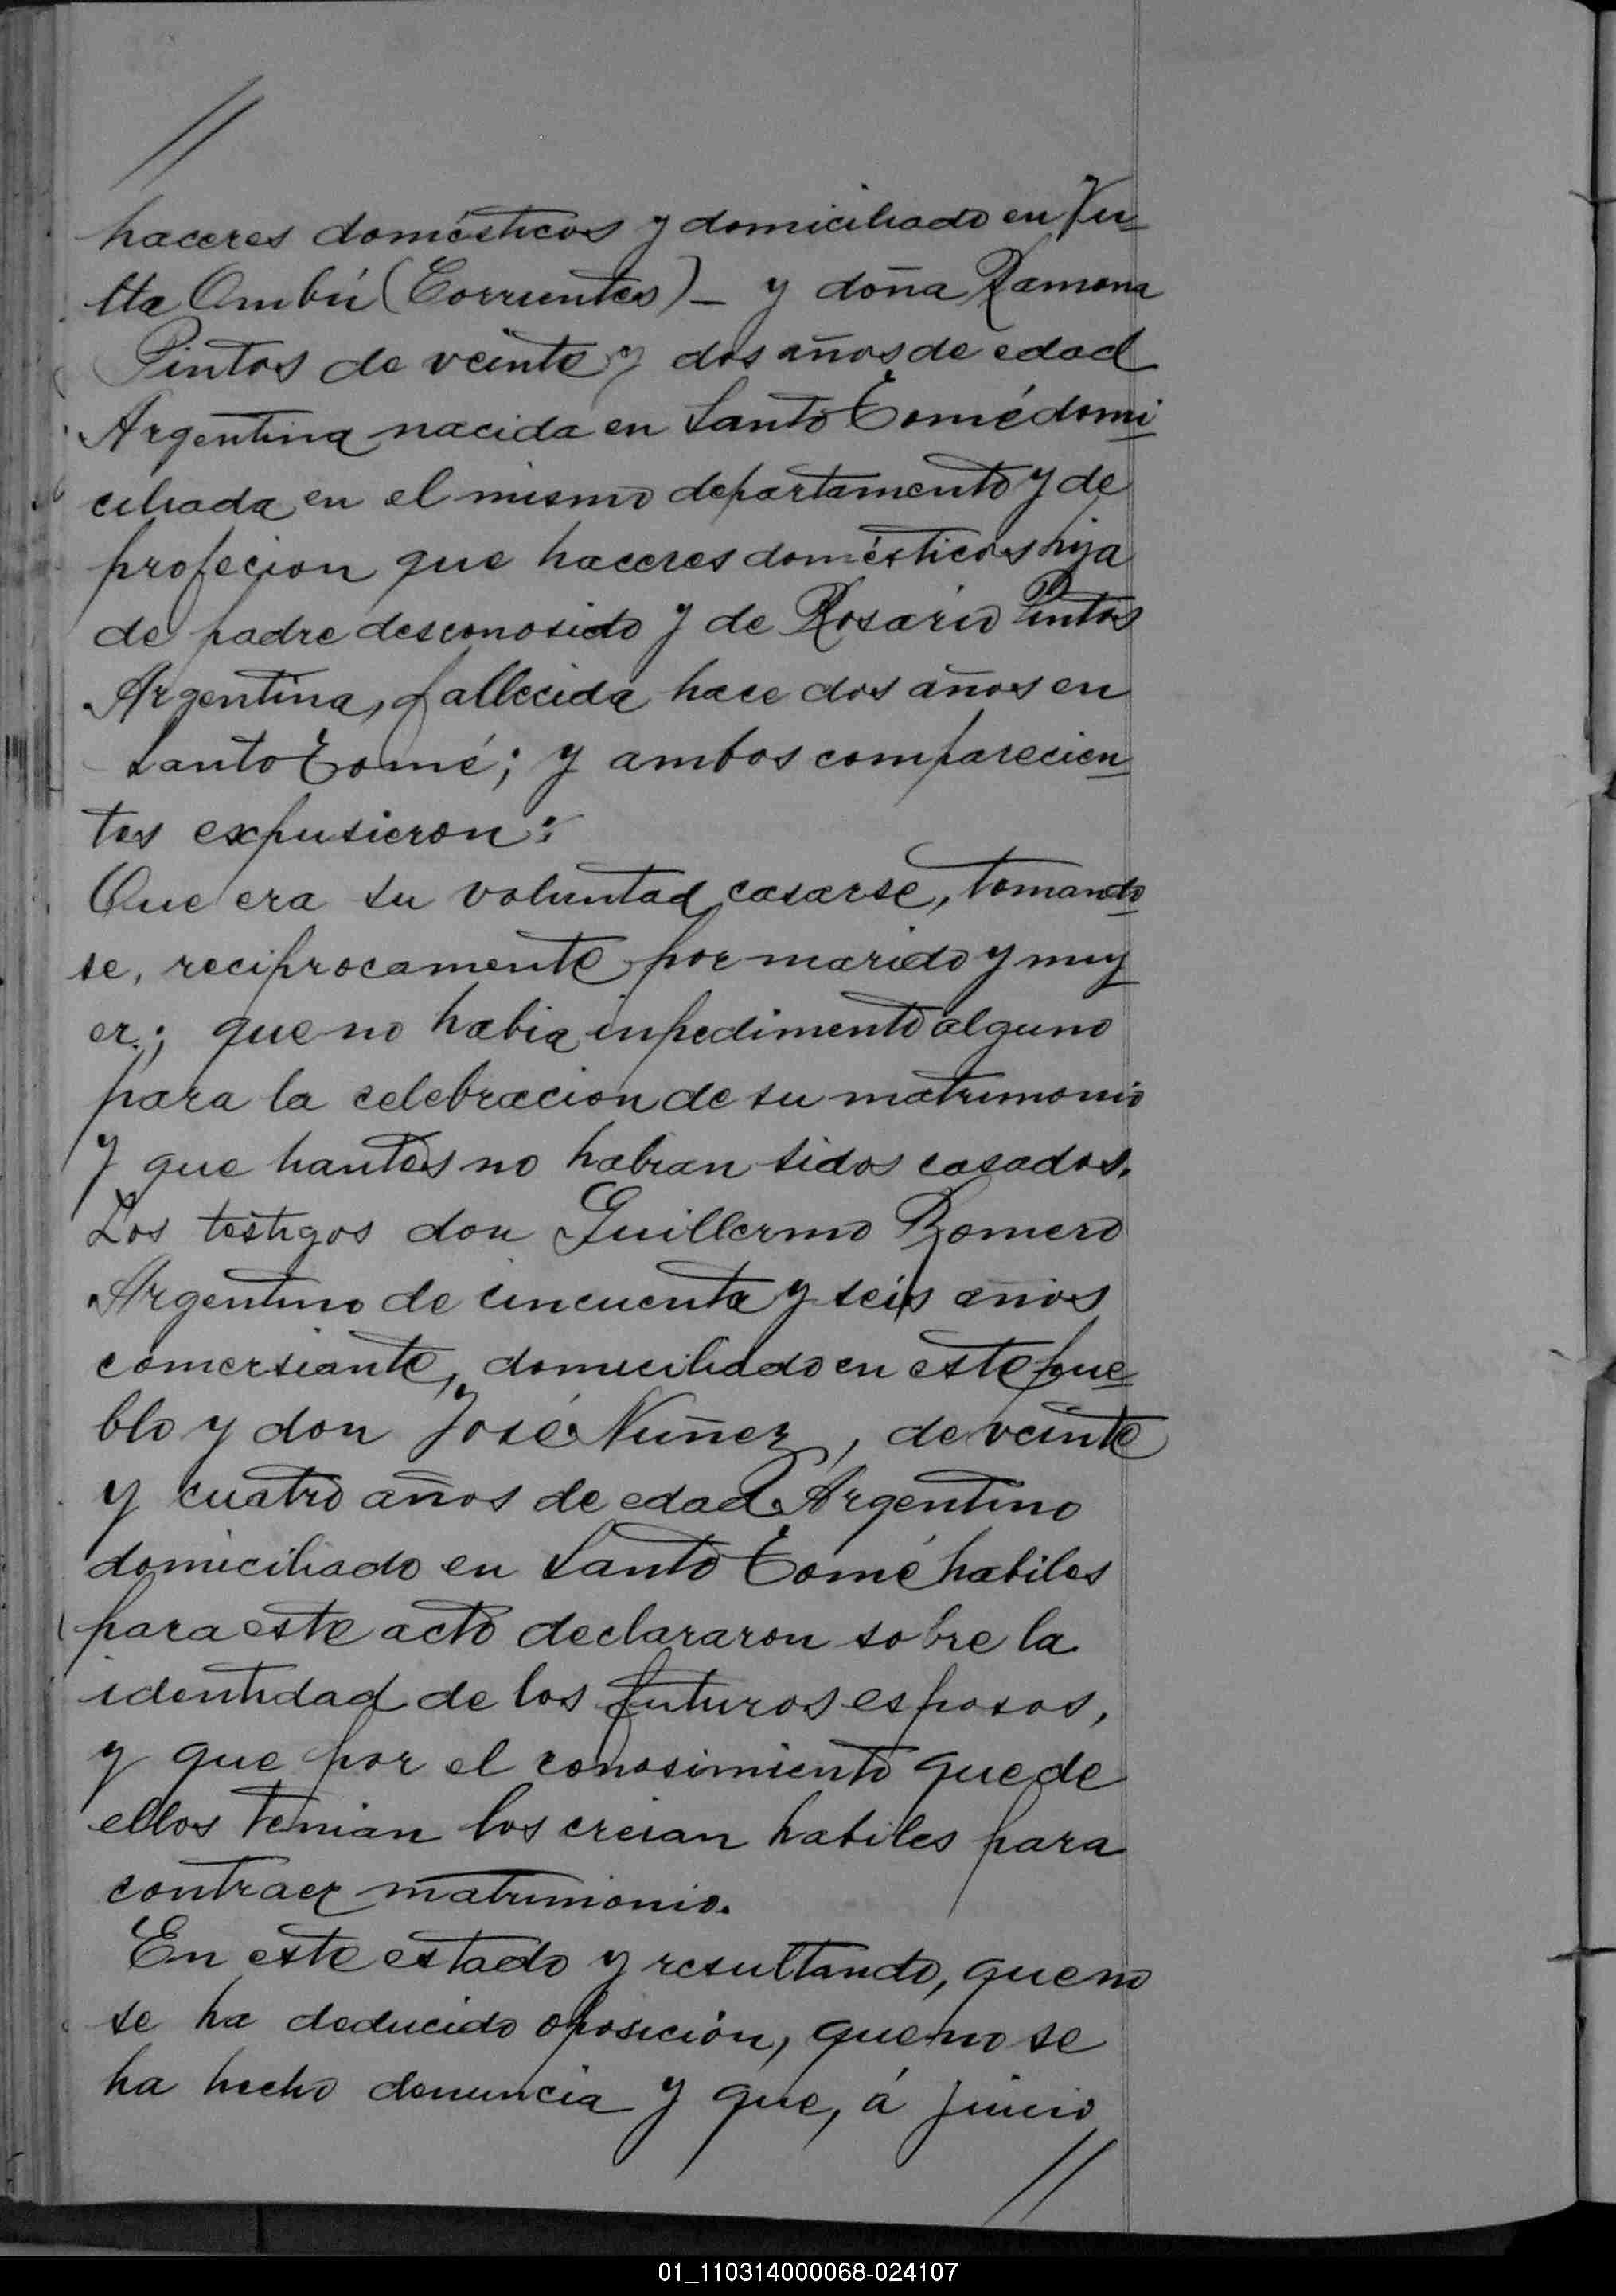 //
haceres domésticos y domiciliado en Vu-
lta Ombú (Corrientes) – y doña Ramona
Pintos de veinte y dos años de edad
Argentina nacida en Santo Tomé domi-
ciliada en el mismo departamento y de
profecion que haceres domésticos hija
de padre desconosido y de Rosario Pintos
Argentina, fallecida hace dos años en
Santo Tomé; y ambos comparecien-
tes expusieron:
Que era su voluntad casarse, tomando-
se, reciprocamente por marido y muj-
er; que no habia inpedimento alguno
para la celebracion de su matrimonio
y que hantes no habian sidos casados.
Los testigos don Guillermo Romero
Argentino de cincuenta y seis años
comersiante, domiciliado en este pue-
blo y don José Nuñez, de veinte
y cuatro años de edad Argentino
domiciliado en Santo Tomé habiles
para este acto declararon sobre la
identidad de los futuros esposos,
y que por el conosimiento que de
ellos tenian los creian habiles para
contraer matrimonio.
En este estado y resultando, que no
se ha deducido oposicion, que no se
ha hecho denuncia y que, á juicio
//
01_110314000068-024107